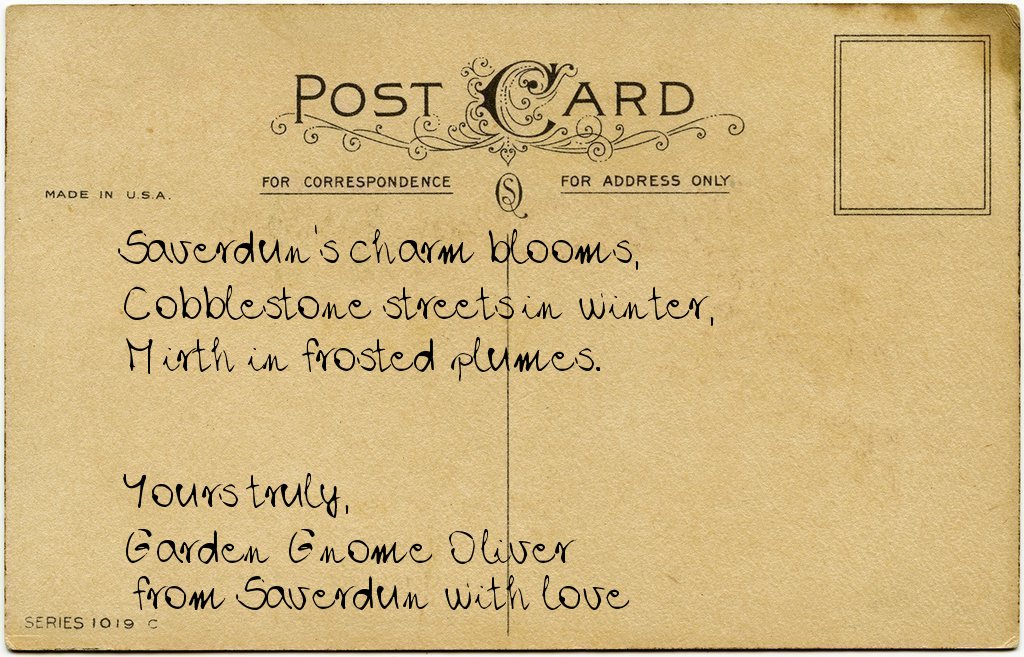 POST CARD
FOR CORRESPONDENCE
FOR ADDRESS ONLY
MADE IN U.S.A.
Saverdun's charm blooms,
Cobblestone streets in winter,
Mirth in frosted plumes.
Yours truly,
Garden Gnome Oliver
from Saverdun with love
SERIES 1019 C